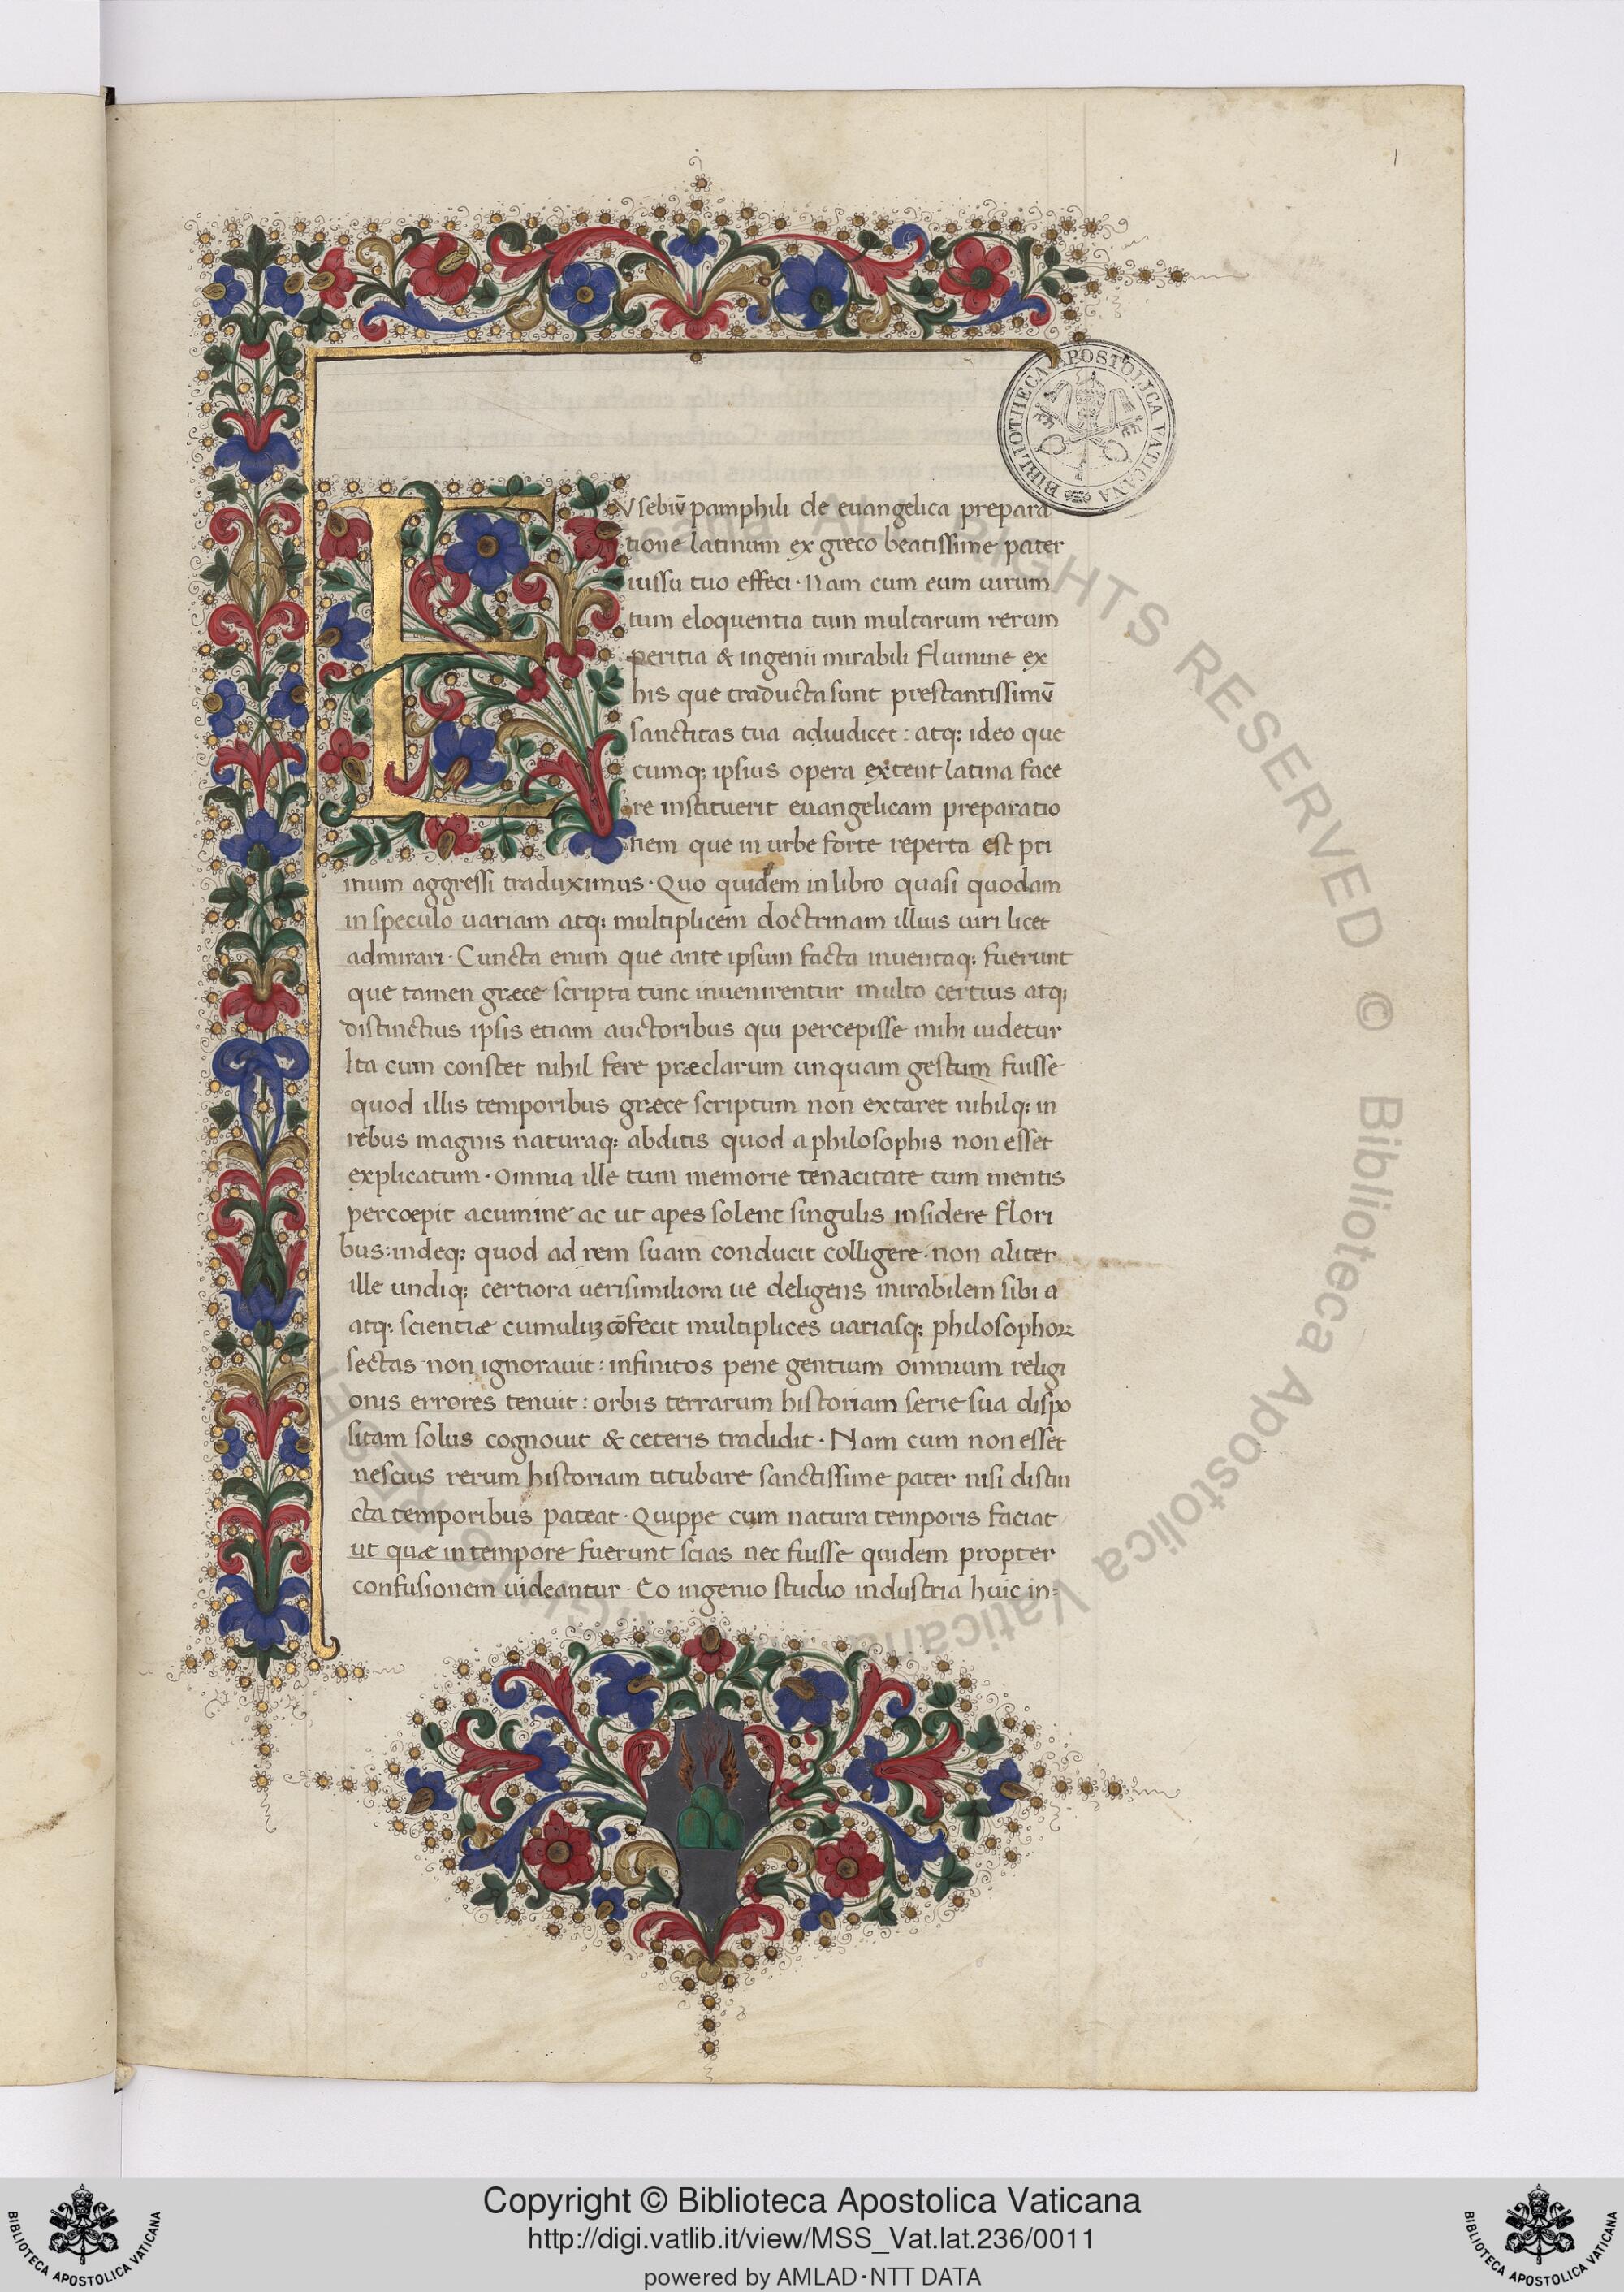 1
BIBLIOTHECA APOSTOLICA VATICANA
EVsebiū pamphili de euangelica prepara
tione latinum ex greco beatissime pater
iussu tuo effeci · Nam cum eum uirum
tum eloquentia tum multarum rerum
peritia & ingenii mirabili flumine ex
his que traducta sunt prestantissimū
sanctitas tua adiudicet : atq; ideo que
cumq; ipsius opera extent latina face
re instituerit euangelicam preparatio
nem que in urbe forte reperta est pri
mum aggressi traduximus · Quo quidem in libro quasi quodam
in speculo uariam atq; multiplicem doctrinam illius uiri licet
admirari · Cuncta enim que ante ipsum facta inuentaq; fuerunt
que tamen græce scripta tunc inuenirentur multo certius atq;
distinctius ipsis etiam auctoribus qui percepisse mihi uidetur
Ita cum constet nihil fere præclarum unquam gestum fuisse
quod illis temporibus græce scriptum non extaret nihilq; in
rebus magnis naturaq; abditis quod a philosophis non esset
explicatum · Omnia ille tum memorie tenacitate tum mentis
percoepit acumine ac ut apes solent singulis insidere flori
bus : indeq; quod ad rem suam conducit colligere · non aliter
ille undiq; certiora uerisimiliora ue deligens mirabilem sibi a
atq; scientiæ cumuluʒ cōfecit multiplices uariasq; philosophoꝝ
sectas non ignorauit : infinitos pene gentium omnium religi
onis errores tenuit : orbis terrarum historiam serie sua dispo
sitam solus cognouit & ceteris tradidit · Nam cum non esset
nescius rerum historiam titubare sanctissime pater nisi distin
cta temporibus pateat · Quippe cum natura temporis faciat
ut quæ in tempore fuerunt scias nec fuisse quidem propter
confusionem uideantur · Eo ingenio studio industria huic in=
ALL RIGHTS RESERVED © Biblioteca Apostolica Vaticana
Copyright © Biblioteca Apostolica Vaticana
http://digi.vatlib.it/view/MSS_Vat.lat.236/0011
powered by AMLAD·NTT DATA
BIBLIOTECA APOSTOLICA VATICANA
BIBLIOTECA APOSTOLICA VATICANA